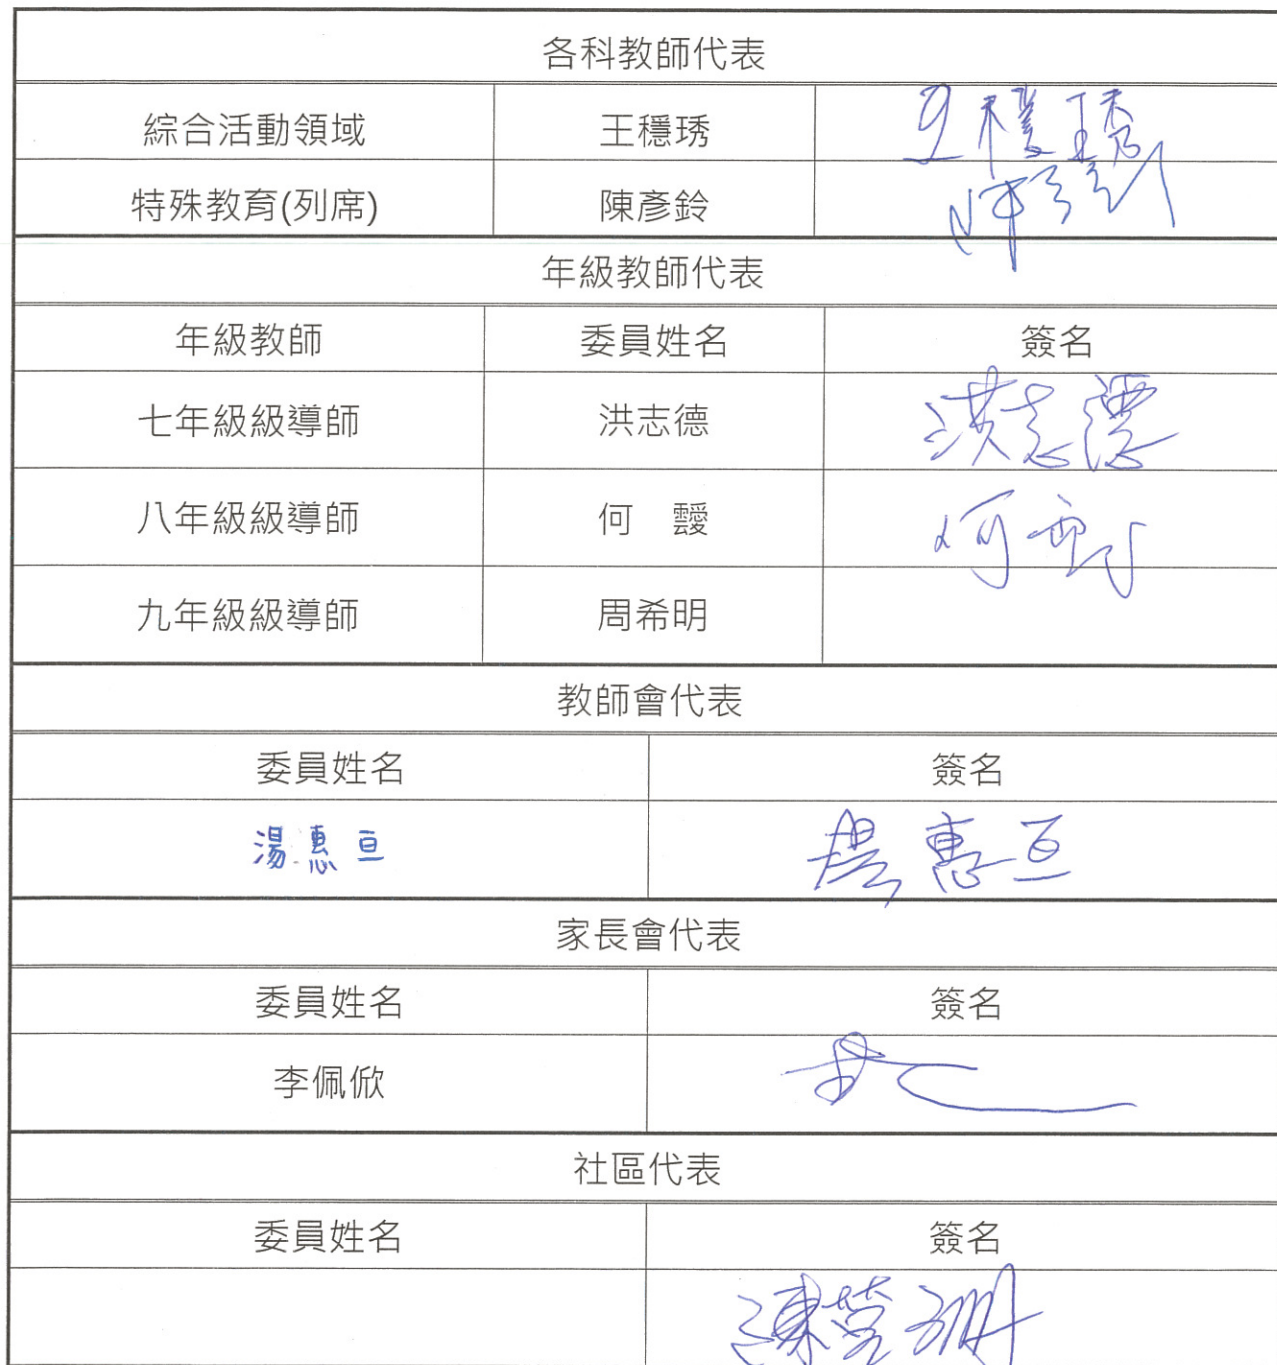 各科教師代表
綜合活動領域 王穩琇 王穩琇
特殊教育(列席) 陳彥鈴
年級教師代表
年級教師 委員姓名 簽名
七年級級導師 洪志德 洪志德
八年級級導師 何 靉 何
九年級級導師 周希明
教師會代表
委員姓名 簽名
湯惠亘 湯惠亘
家長會代表
委員姓名 簽名
李佩俽
社區代表
委員姓名 簽名